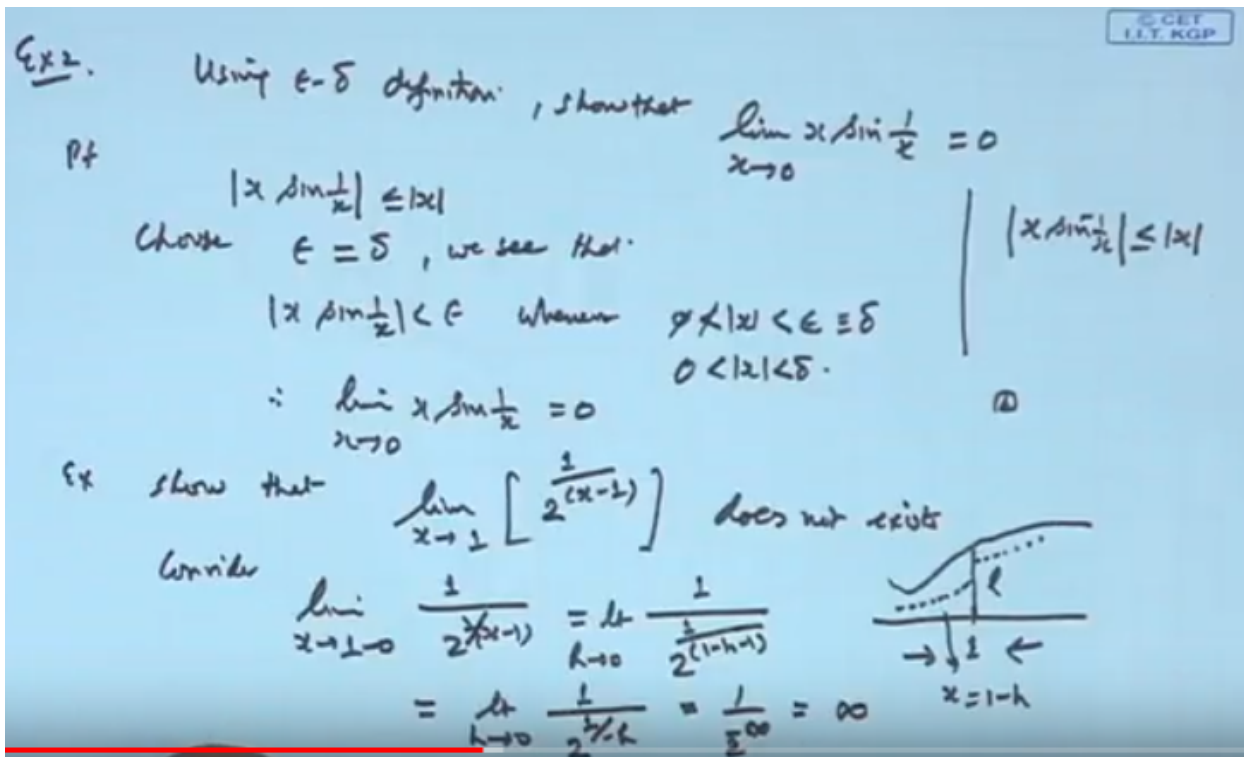 © CET
I.I.T. KGP
Ex 2. Using ε-δ definition, show that lim x→0 x sin 1/x = 0
Pf
|x sin 1/x| ≤ |x|
|x sin 1/x| ≤ |x|
Choose ε = δ, we see that.
|x sin 1/x| < ε whenever 0 < |x| < ε = δ
0 < |x| < δ.
∴ lim x→0 x sin 1/x = 0
Ex show that lim x→1 [2^(1/(x-1))] does not exists
Consider
lim x→1-0 1/2^(1/(x-1)) = lt h→0 1/2^(1/(1-h-1))
l
→ 1 ←
x = 1-h
= lt h→0 1/2^(1/-h) = 1/2^-∞ = ∞